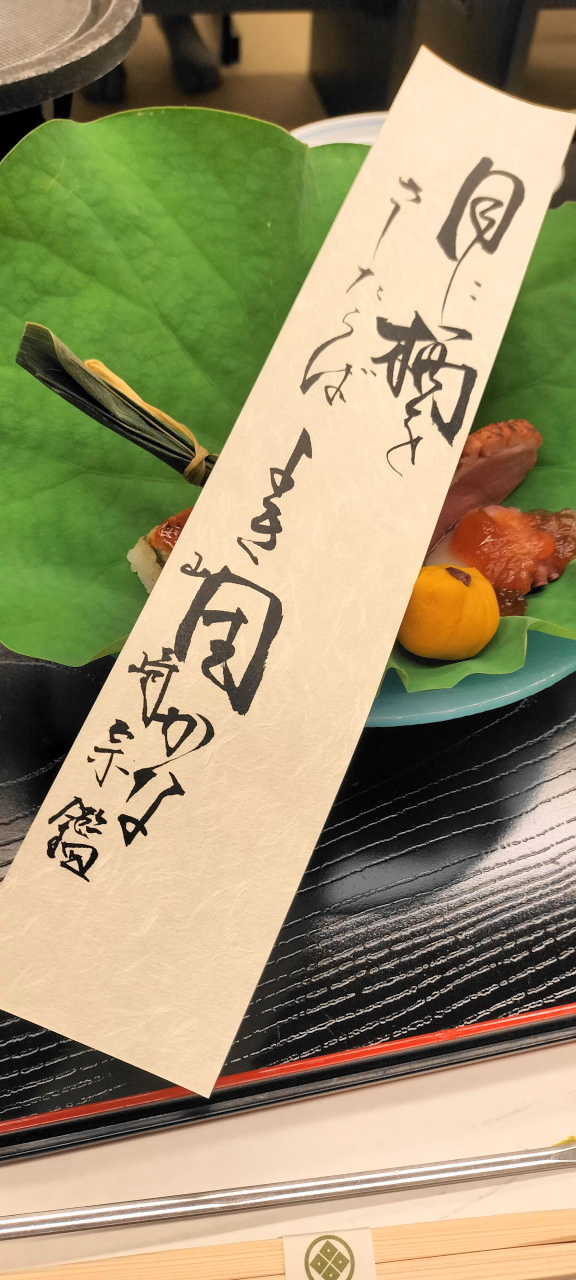 月に柄を
さしたらば
よき団かな
山崎宗鑑